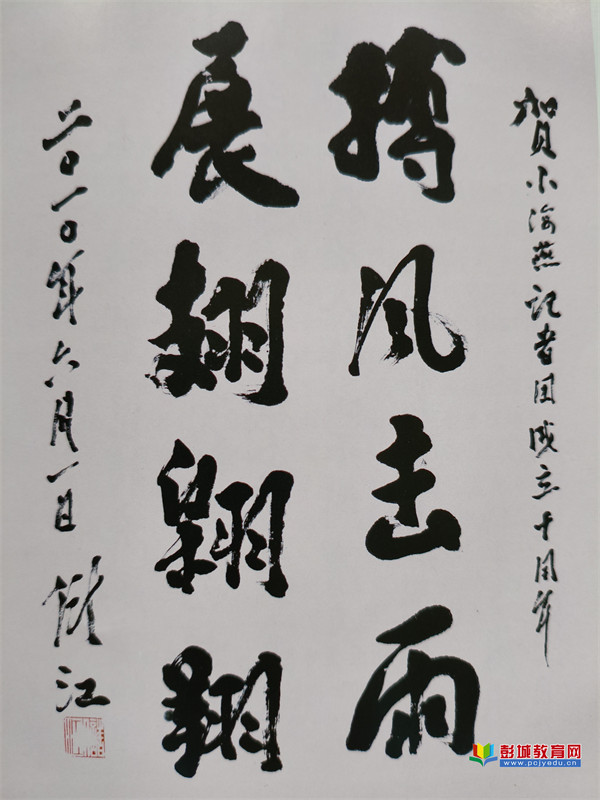 贺小海燕记者团成立十周年
搏风击雨
展翅翱翔
二〇一〇年六月一日
江
彭城教育网
www.pcjyedu.cn